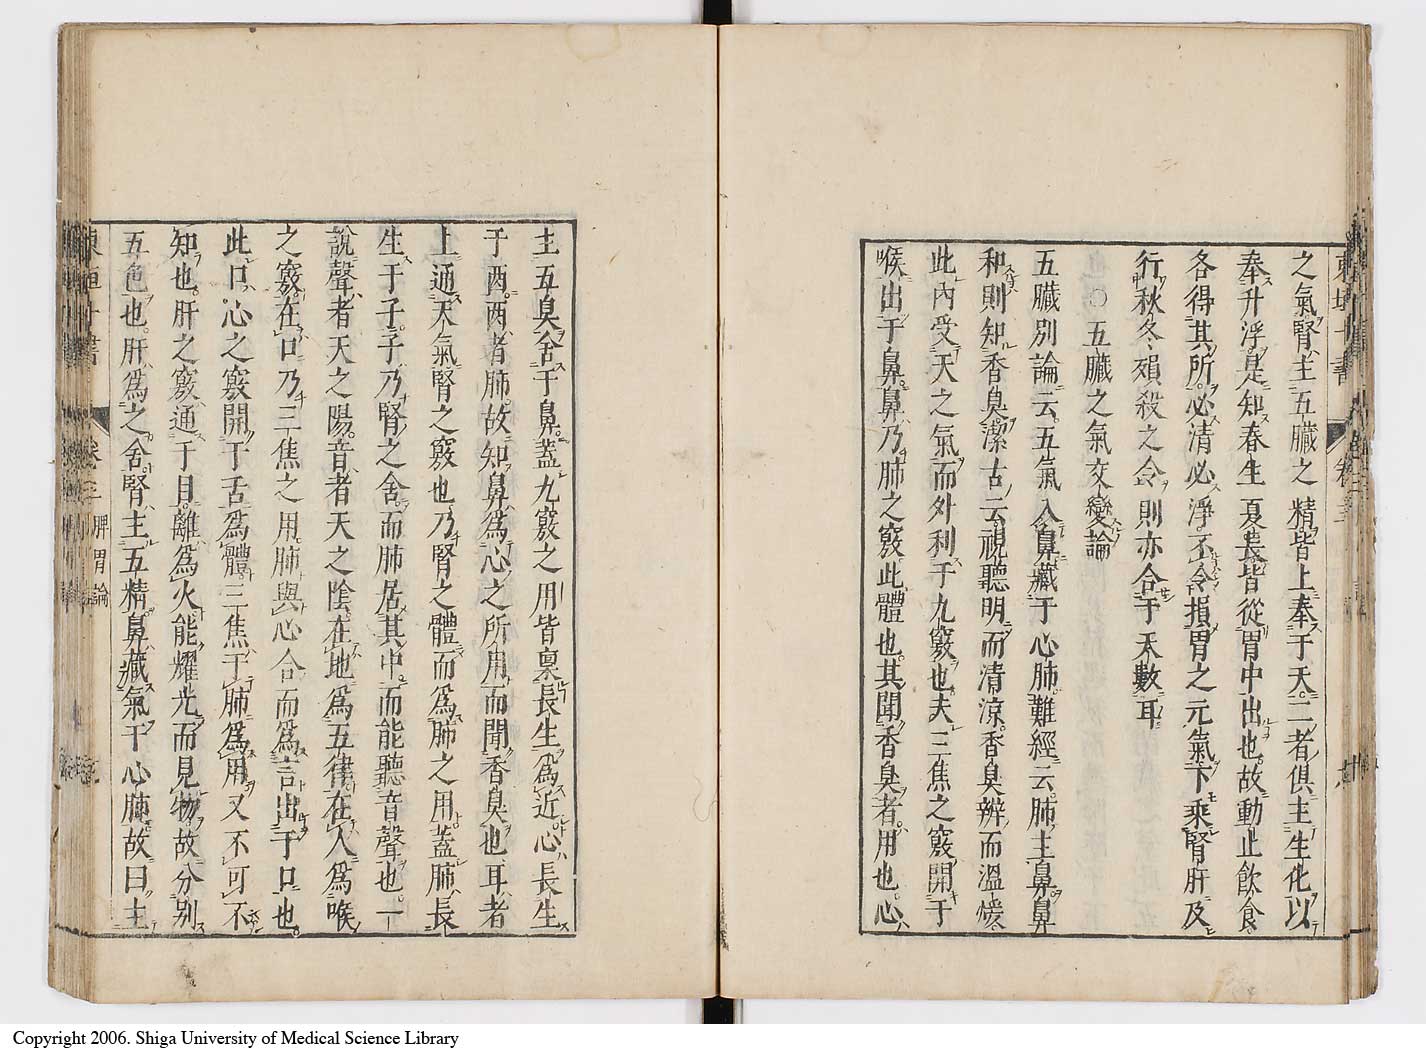 之氣腎主五臟之精皆上奉于天二者俱主生化以
奉升浮是知春生夏長皆從胃中出也故動止飲食
各得其所必清必淨不令損胃之元氣下乘腎肝及
行秋冬殞殺之令則亦合于天數耳
〇五臟之氣交變論
五臟別論云五氣入鼻藏于心肺難經云肺主鼻鼻
和則知香臭潔古云視聽明而清凉香臭辨而溫煖
此內受天之氣而外利于九竅也夫三焦之竅開于
喉出于鼻鼻乃肺之竅此體也其聞香臭者用也心
主五臭舍于鼻蓋九竅之用皆禀長生爲近心長生
于酉酉者肺故知鼻爲心之所用而聞香臭也耳者
上通天氣腎之竅也乃腎之體而爲肺之用蓋肺長
生于子子乃腎之舍而肺居其中而能聽音聲也一
說聲者天之陽音者天之陰在地爲五律在人爲喉
之竅在口乃三焦之用肺與心合而爲言出于口也
此口心之竅開于舌爲體三焦于肺爲用又不可不
知也肝之竅通于目離爲火能耀光而見物故分別
五色也肝爲之舍腎主五精鼻藏氣于心肺故曰主
東垣十書 卷三 脾胃論
Copyright 2006. Shiga University of Medical Science Library